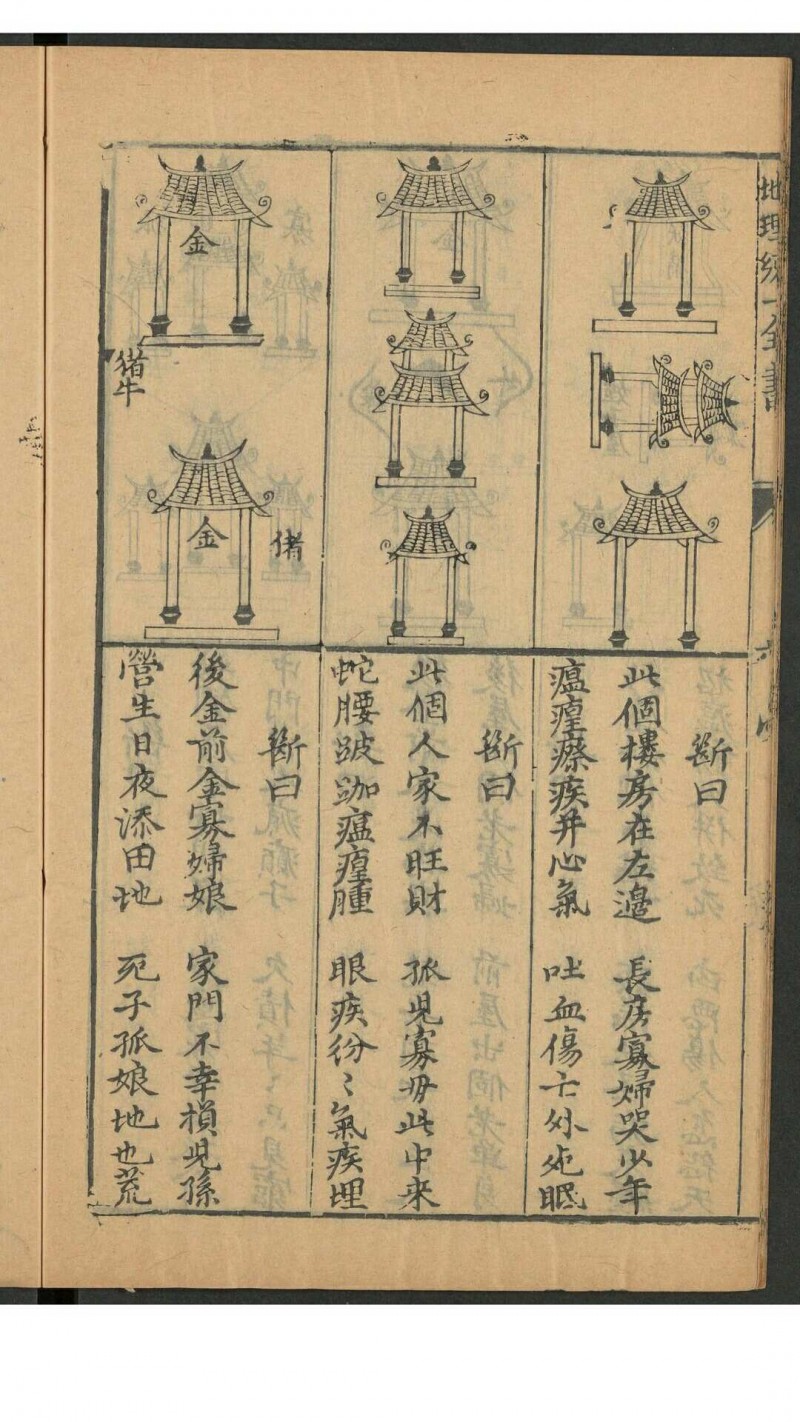 地理統一全書
斷曰
此個樓房在左邉 長房寡婦哭少年
瘟㾮瘵疾并心氣 吐血傷亡外死眠
斷曰
此個人家不旺財 孤児寡毋此中来
蛇腰跛跏瘟㾮腫 眼疾紛〻氣疾埋
金
猪牛
金
猪
斷曰
後金前金寡婦娘 家門不幸損児孫
營生日夜添田地 死子孤娘地也荒